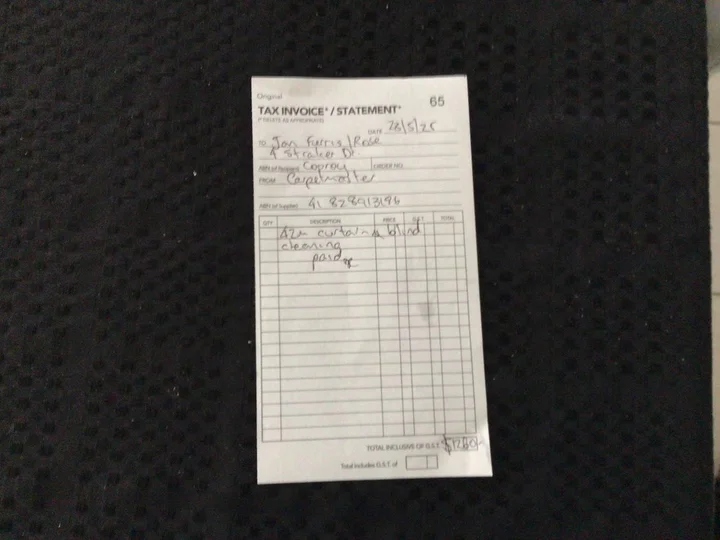 Original
65
TAX INVOICE* / STATEMENT*
(*DELETE AS APPROPRIATE)
DATE 28/5/25
TO Jan Furris / Rose
4 Straker Dr.
ABN (of Recipient) ORDER NO.
FROM Carpetmaster
ABN (of Supplier) 41 828913196
QTY DESCRIPTION PRICE G.S.T. TOTAL
42m curtain & blind
cleaning
paid
TOTAL INCLUSIVE OF G.S.T.
Total includes G.S.T. of